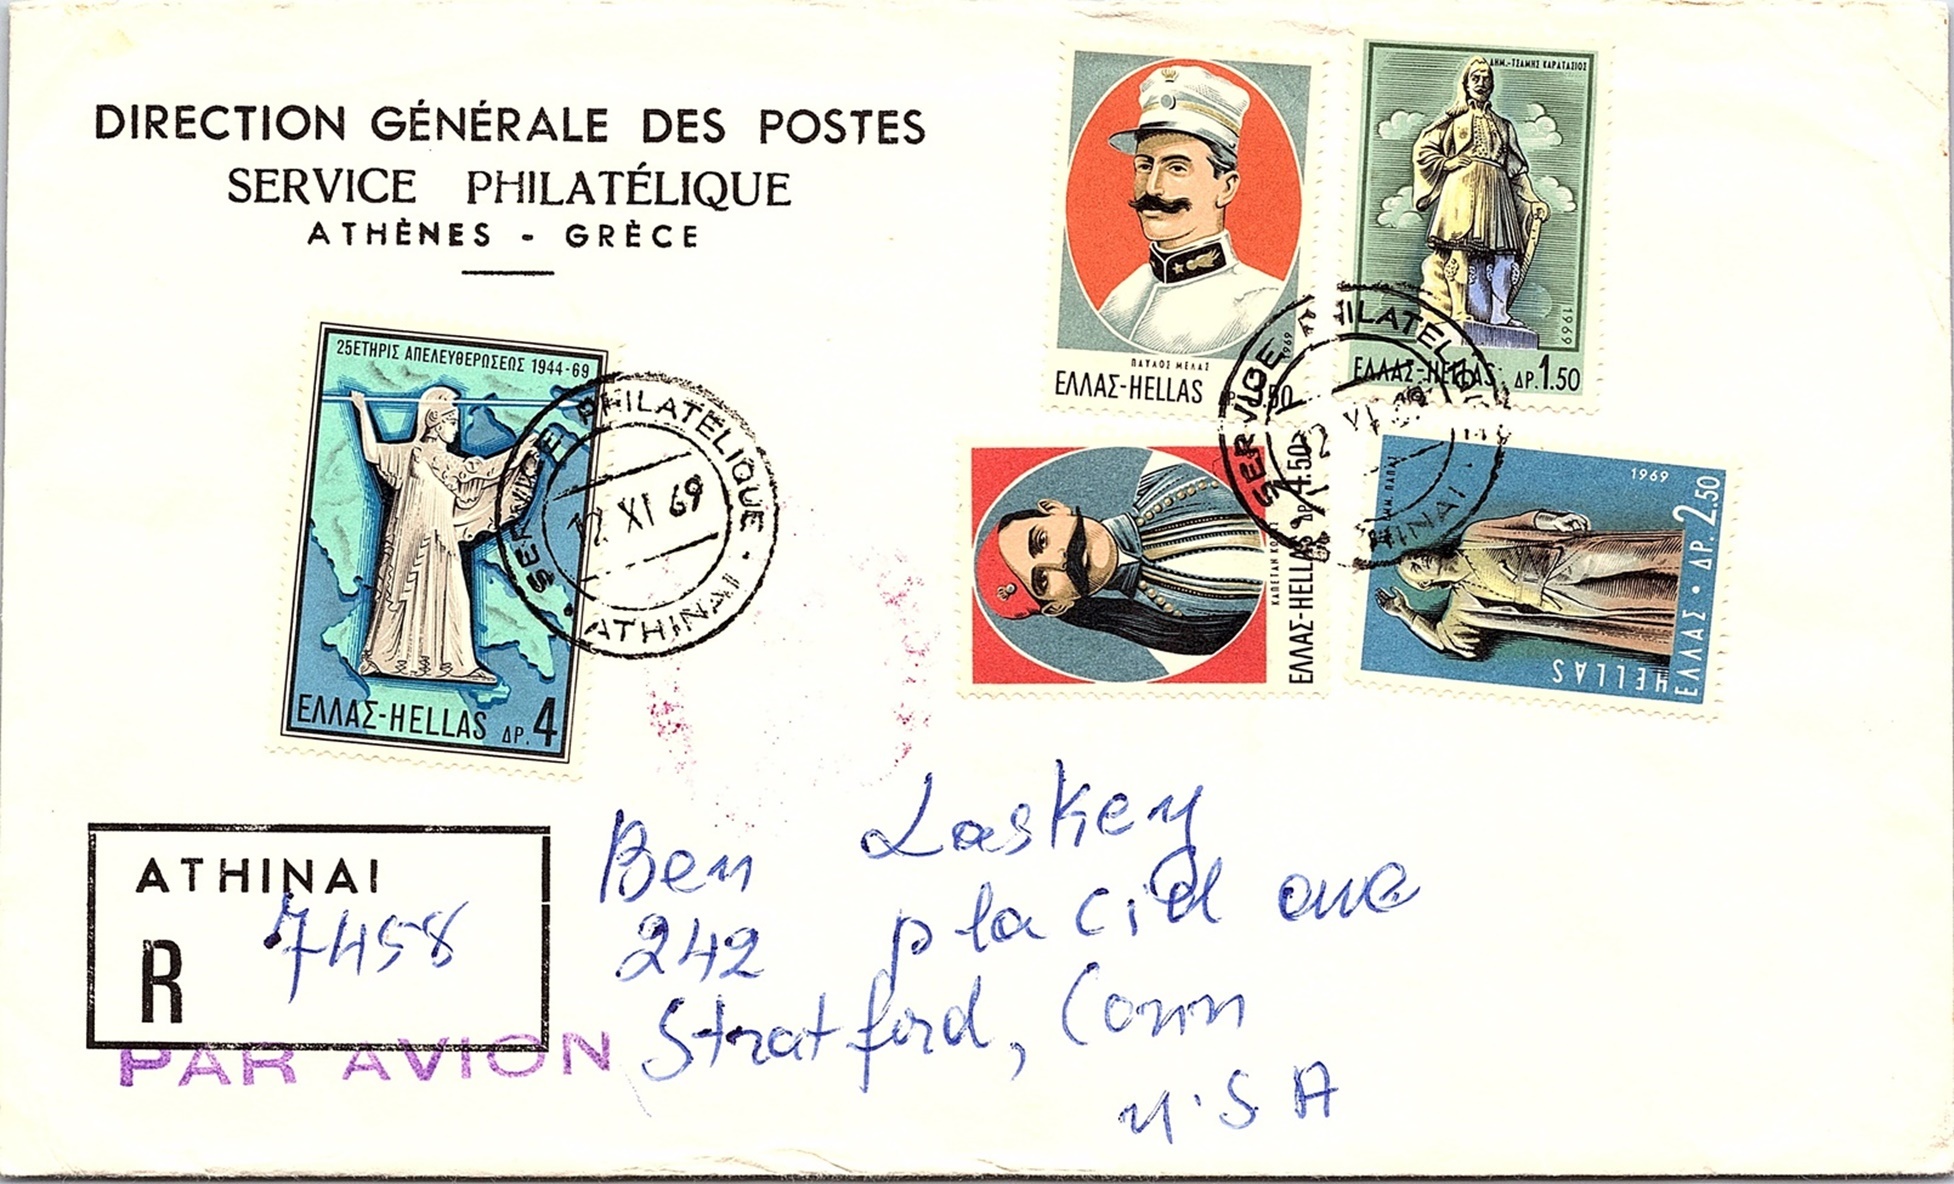 DIRECTION GÉNÉRALE DES POSTES
SERVICE PHILATÉLIQUE
ATHÈNES - GRÈCE
25ΕΤΗΡΙΣ ΑΠΕΛΕΥΘΕΡΩΣΕΩΣ 1944-69
ΕΛΛΑΣ-HELLAS ΔΡ. 4
SERVICE PHILATÉLIQUE
12 XI 69
ATHINAI
ΠΑΥΛΟΣ ΜΕΛΑΣ
1969
ΕΛΛΑΣ-HELLAS
ΔΗΜ.-ΤΣΑΜΗΣ ΚΑΡΑΤΑΣΙΟΣ
1969
ΕΛΛΑΣ-HELLAS ΔΡ. 1.50
ΕΛΛΑΣ-HELLAS ΔΡ. 4.50
1969
ΕΛΛΑΣ • ΔΡ. 2.50
HELLAS
SERVICE PHILATÉLIQUE
XI 69
ATHINAI
ATHINAI
R 7458
PAR AVION
Ben Laskey
242 placid ave
Stratford, Conn
U.S A